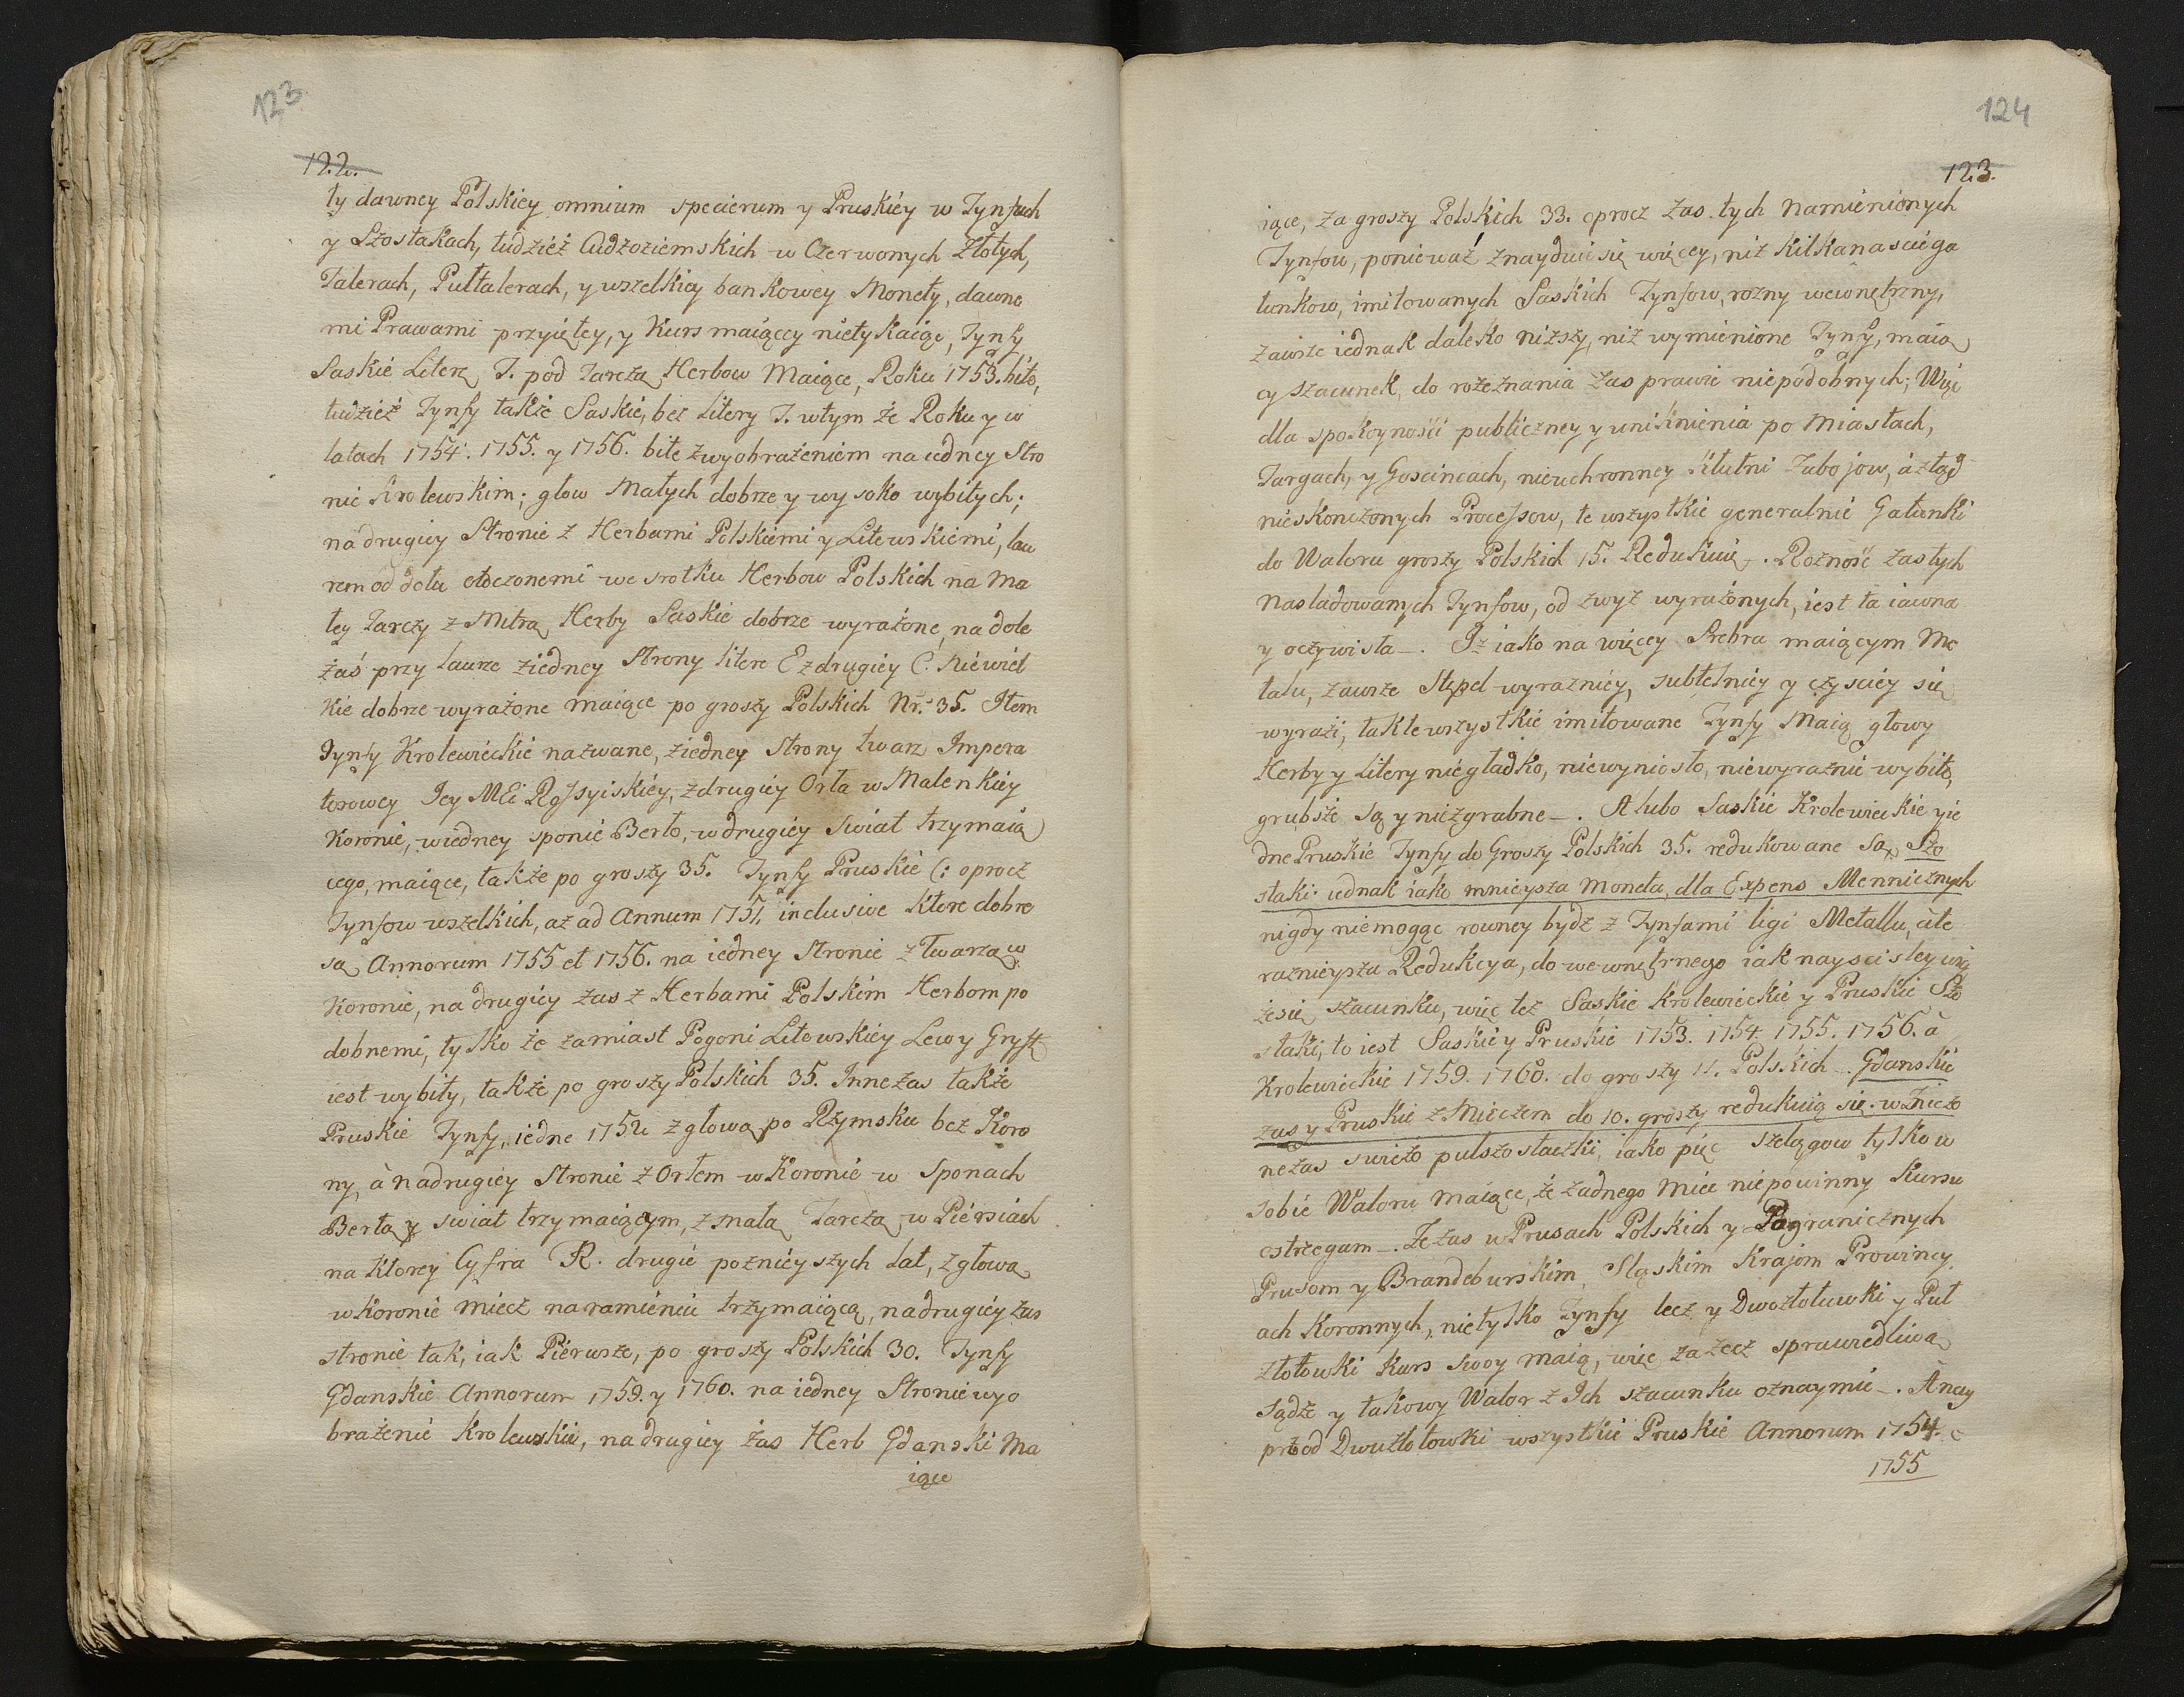 123
122.
ty dawney Polskiey omnium specierum y Pruskiey w Tynfach
y Szostakach, tudzież Cudzoziemskich w Czerwonych Złotych,
Talerach, Pułtalerach, y wszelkiey bankowey Monety, dawne
mi Prawami przyiętey, y Kurs maiącey nietykaiąc, Tynfy
Saskie Literę T. pod Tarczą Herbow Maiące, Roku 1753. bite,
tudzież Tynfy także Saskie, bez Litery T. w tym że Roku y w
latach 1754. 1755. y 1756. bite z wyobrażeniem na iedney Stro
nie Krolewskim; głow Małych dobrze y wysoko wybitych;
na drugiey Stronie z Herbami Polskiemi y Litewskiemi, lau
rem od dołu otoczonemi we srotku Herbow Polskich na Ma
łey Tarczy z Mitrą Herby Saskie dobrze wyrażone, na dole
żaś przy laurze z iedney Strony literę E z drugiey C. niewiel
kie dobrze wyrażone maiące po groszy Polskich Nr. 35. Item
Tynfy Krolewieckie nazwane, z iedney Strony twarz Impera
torowey Jey MCi Rossyiskiey, z drugiey Orła w Malenkiey
Koronie, w iedney sponie Berło, w drugiey Swiat trzymaią
cego, maiące, także po groszy 35. Tynfy Pruskie (: oprocz
Tynfow wszelkich, aż ad Annum 1751, inclusive ktore dobre
są Annorum 1755 et 1756. na iedney Stronie z Twarzą w
Koronie, na drugiey zas z Herbami Polskim Herbom po
dobnemi, tylko że zamiast Pogoni Litewskiey Lewy Gryff
iest wybity, także po groszy Polskich 35. Inne zas także
Pruskie Tynfy, iedne 1752 z głową po Rzymsku bez Koro
ny, à na drugiey Stronie z Orłem w Koronie w Sponach
Berła y swiat trzymaiącym, z małą Tarczą w Piersiach
na ktorey Cyfra R. drugie poznieyszych Lat, z głową
w Koronie miecz na ramieniu trzymaiącą, na drugiey zas
stronie tak, iak Pierwsze, po groszy Polskich 30. Tynfy
Gdanskie Annorum 1759. y 1760. na iedney Stronie wyo
brażenie Krolewskie, na drugiey żas Herb Gdanski Ma
iące
124
123.
iące, za groszy Polskich 33. oprocz zas tych namienionych
Tynfow, ponieważ znayduie się więcey, niż kilkanascie ga
tunkow, imitowanych Saskich Tynfow, rozny wewnętrzny,
zawsze iednak daleko niższy, niż wymienione Tynfy, maią
cy szacunek, do rozeznania zas prawie niepodobnych; Więc
dla spokoynośći publiczney y uniknienia po Miastach,
Targach, y Goscincach, nieuchronney kłutni Zaboiow, a ztąd
nieskonczonych Processow, te wszystkie generalnie Gatunki
do Waloru groszy Polskich 15. Redukuię. Rożność zas tych
nasladowanych Tynfow, od zwyż wyrażonych, iest ta iawna
y oczywista. Iż iako na więcey Srebra maiącym Me
talu, zawsze Stępel wyrazniey, subtelniey y czysciey się
wyrazi, tak te wszystkie imitowane Tynfy maią głowy
Herby y Litery niegładko, niewyniosło, niewyraznie wybite,
grubsze są y niezgrabne. A lubo Saskie Krolewieckie y ie
dne Pruskie Tynfy do Groszy Polskich 35. redukowane są, Szo
staki iednak iako mnieysza Moneta, dla Expens Mennicznych
nigdy niemogąc rowney bydz z Tynfami ligi Metallu, ile
raznieysza Redukcya, do wewnętrznego iak nayscisley wię
że się szacunku, więc też Saskie Krolewieckie y Pruskie Szo
staki, to iest Saskie y Pruskie 1753. 1754. 1755. 1756. à
Krolewieckie 1759. 1760. do groszy 11. Polskich. Gdanskie
zas y Pruskie z Mieczem do 10. groszy redukuią się. w Znieśo
ne zas swieżo pułszostaczki, iako pięc szelągow tylko w
sobie Waloru maiące, że żadnego miec niepowinny Kursu
ostrzegam. Ze zas w Prusach Polskich y Pogranicznych
Prusom y Brandeburskim, Sląskim Krajom Prowincy
ach Koronnych, nietylko Tynfy lecz y Dwozłotuwki y Puł
złotowki kurs swoy maią, więc za rzecz sprawiedliwą
sądzę y takowy Walor z Ich szacunku oznaymic. A nay
przod Dwuzłotowki wszystkie Pruskie Annorum 1754.
1755